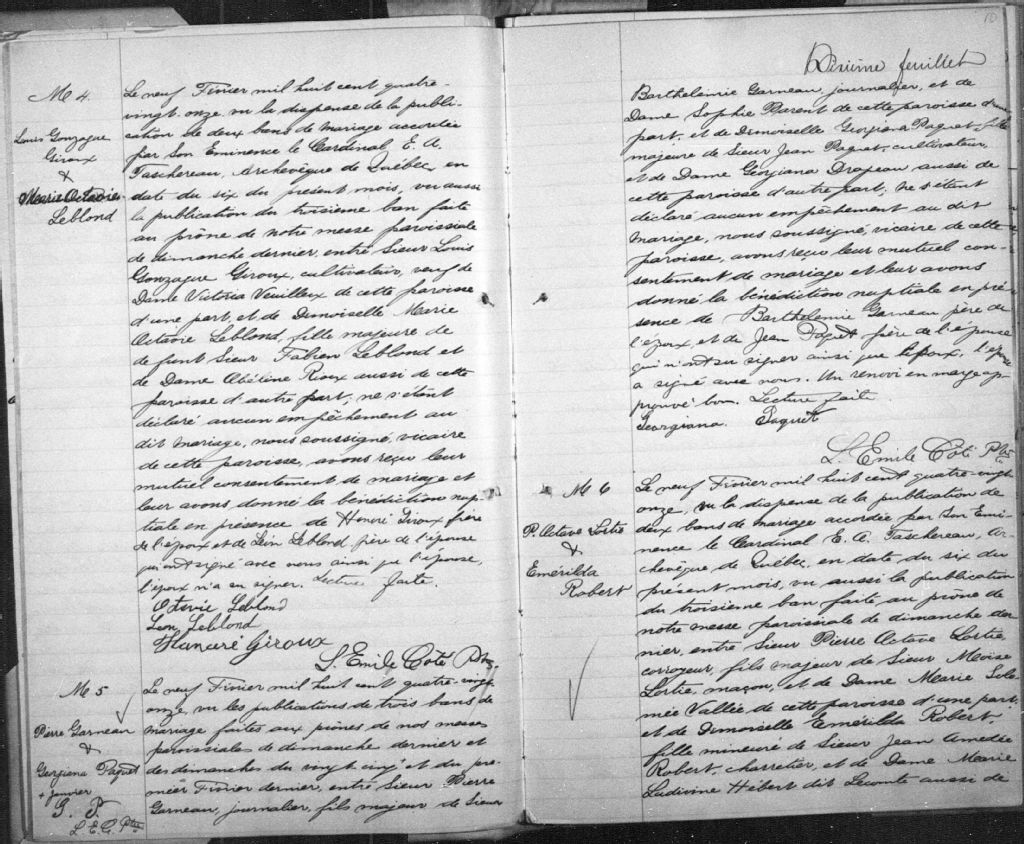 M 4.
Louis Gonzague
Giroux
&
Marie Octavie
Leblond
Le neuf Février mil huit cent quatre-
vingt-onze, vu la dispense de la publi-
cation de deux bans de mariage accordée
par Son Eminence le Cardinal E. A.
Taschereau, Archevêque de Québec, en
date du six du présent mois, vu aussi
la publication du troisième ban faite
au prône de notre messe paroissiale
de dimanche dernier, entre Sieur Louis
Gonzague Giroux, cultivateur, veuf de
Dame Victoria Veuilleux de cette paroisse
d'une part, et de Demoiselle Marie
Octavie Leblond, fille majeure de
de funt Sieur Fabien Leblond et
de Dame Abéline Rioux aussi de cette
paroisse d'autre part; ne s'étant
déclaré aucun empêchement au
dit mariage, nous soussigné, vicaire
de cette paroisse, avons reçu leur
mutuel consentement de mariage et
leur avons donné la bénédiction nup-
tiale en présence de Honoré Giroux frère
de l'époux et de Léon Leblond frère de l'épouse
qui ont signé avec nous ainsi que l'épouse,
l'époux n'a su signer. Lecture faite.
Octavie Leblond
Léon Leblond
Hanaré Giroux
L. Emile Coté Ptre
M 5
Pierre Garneau
&
Georgiana Paquet
+ janvier
G. P.
L. E. C. Ptre
Le neuf Février mil huit cent quatre-vingt-
onze, vu les publications de trois bans de
mariage faites aux prônes de nos messes
paroissiales de dimanche dernier et
des dimanches du vingt-cinq + et du pre-
mier Février dernier, entre Sieur Pierre
Garneau, journalier, fils majeur de Sieur
10
Dixième feuillet
Barthelémie Garneau, journalier, et de
Dame Sophie Parent de cette paroisse d'une
part, et de Demoiselle Georgiana Paquet, fille
majeure de Sieur Jean Paquet, cultivateur,
et de Dame Georgiana Drapeau aussi de
cette paroisse d'autre part; ne s'étant
déclaré aucun empêchement au dit
mariage, nous soussigné, vicaire de cette
paroisse, avons reçu leur mutuel con-
sentement de mariage et leur avons
donné la bénédiction nuptiale en pré-
sence de Barthelemie Garneau père de
l'époux et de Jean Paquet père de l'épouse
qui n'ont su signer ainsi que l'époux. l'épouse
a signé avec nous. Un renvoi en marge ap-
prouvé bon. Lecture faite.
Georgiana Paquet
L. Emile Coté Ptre
M 6
P. Octave Lortie
&
Emérilda
Robert
Le neuf Février mil huit cent quatre-vingt-
onze, vu la dispense de la publication de
deux bans de mariage accordée par Son Emi-
nence le Cardinal E. A. Taschereau, Ar-
chevêque de Québec, en date du six du
présent mois, vu aussi la publication
du troisième ban faite au prône de
notre messe paroissiale de dimanche der-
nier, entre Sieur Pierre Octave Lortie,
corroyeur, fils majeur de Sieur Moïse
Lortie, maçon, et de Dame Marie Salo-
mée Vallée, de cette paroisse d'une part,
et de Demoiselle Emérilda Robert
fille mineure de Sieur Jean Amedée
Robert, charretier, et de Dame Marie
Ludivine Hébert dit Lecomte aussi de